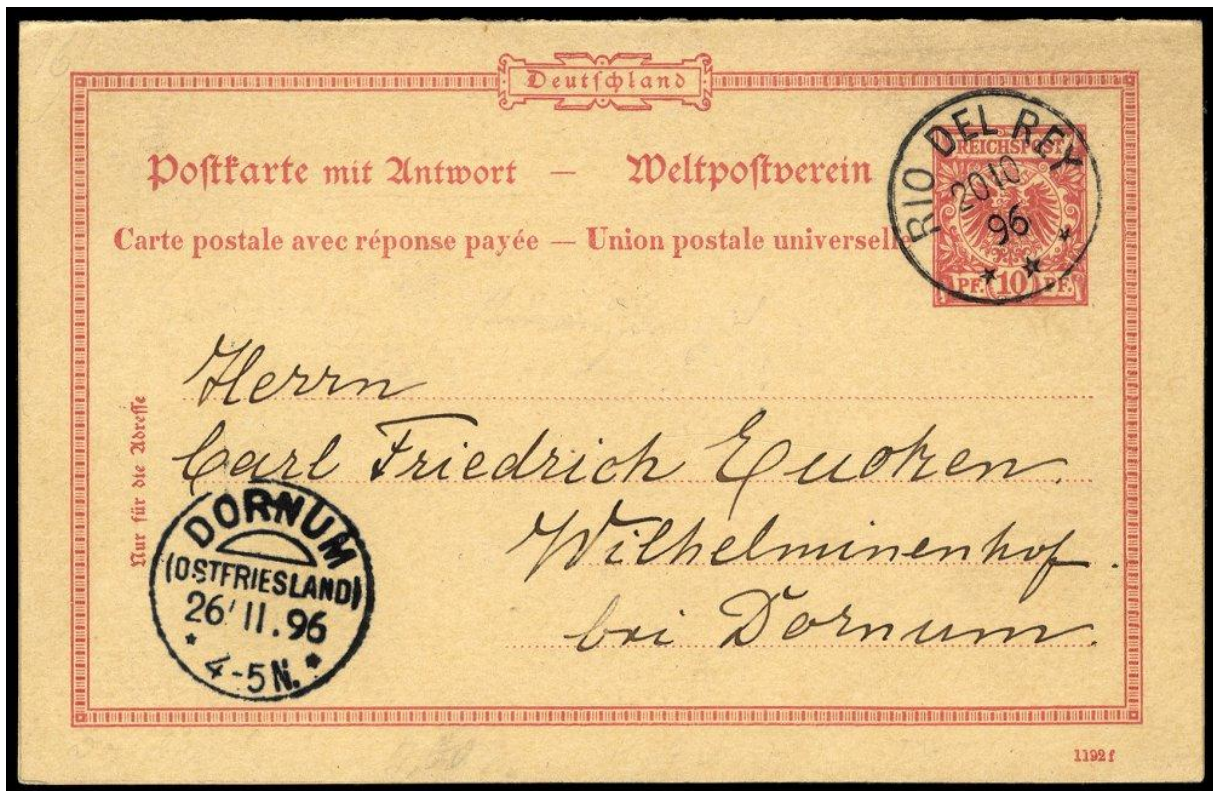 Deutschland
Postkarte mit Antwort — Weltpostverein
Carte postale avec réponse payée — Union postale universelle
RIO DEL REY
20 10
96
REICHSPOST
PF. 10 PF.
Herrn
Carl Friedrich Eucken.
Wilhelminenhof.
bei Dornum.
Nur für die Adresse
DORNUM
(OSTFRIESLAND)
26/11.96
4-5N.
1192 f